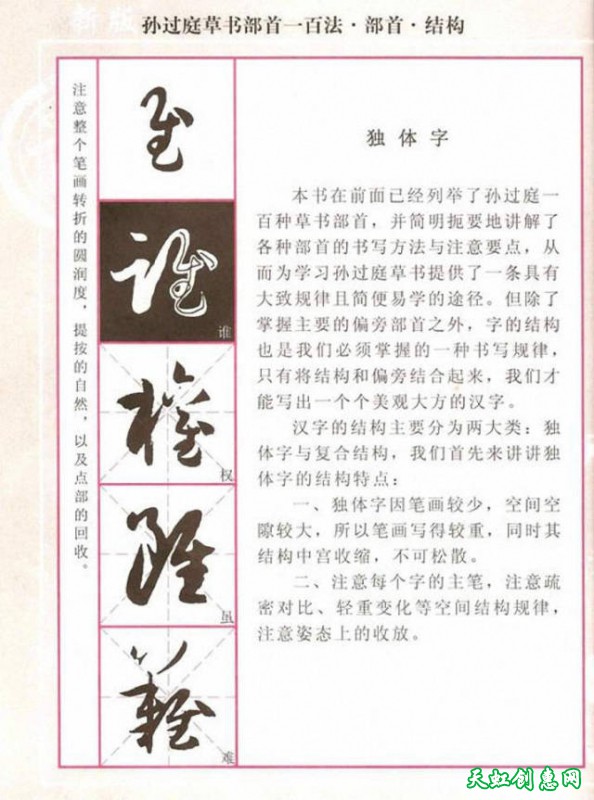 新版
孙过庭草书部首一百法·部首·结构
注意整个笔画转折的圆润度，提按的自然，以及点部的回收。
谁
权
虽
难
独体字
本书在前面已经列举了孙过庭一
百种草书部首，并简明扼要地讲解了
各种部首的书写方法与注意要点，从
而为学习孙过庭草书提供了一条具有
大致规律且简便易学的途径。但除了
掌握主要的偏旁部首之外，字的结构
也是我们必须掌握的一种书写规律，
只有将结构和偏旁结合起来，我们才
能写出一个个美观大方的汉字。
汉字的结构主要分为两大类：独
体字与复合结构，我们首先来讲讲独
体字的结构特点：
一、独体字因笔画较少，空间空
隙较大，所以笔画写得较重，同时其
结构中宫收缩，不可松散。
二、注意每个字的主笔，注意疏
密对比、轻重变化等空间结构规律，
注意姿态上的收放。
天虹创惠网